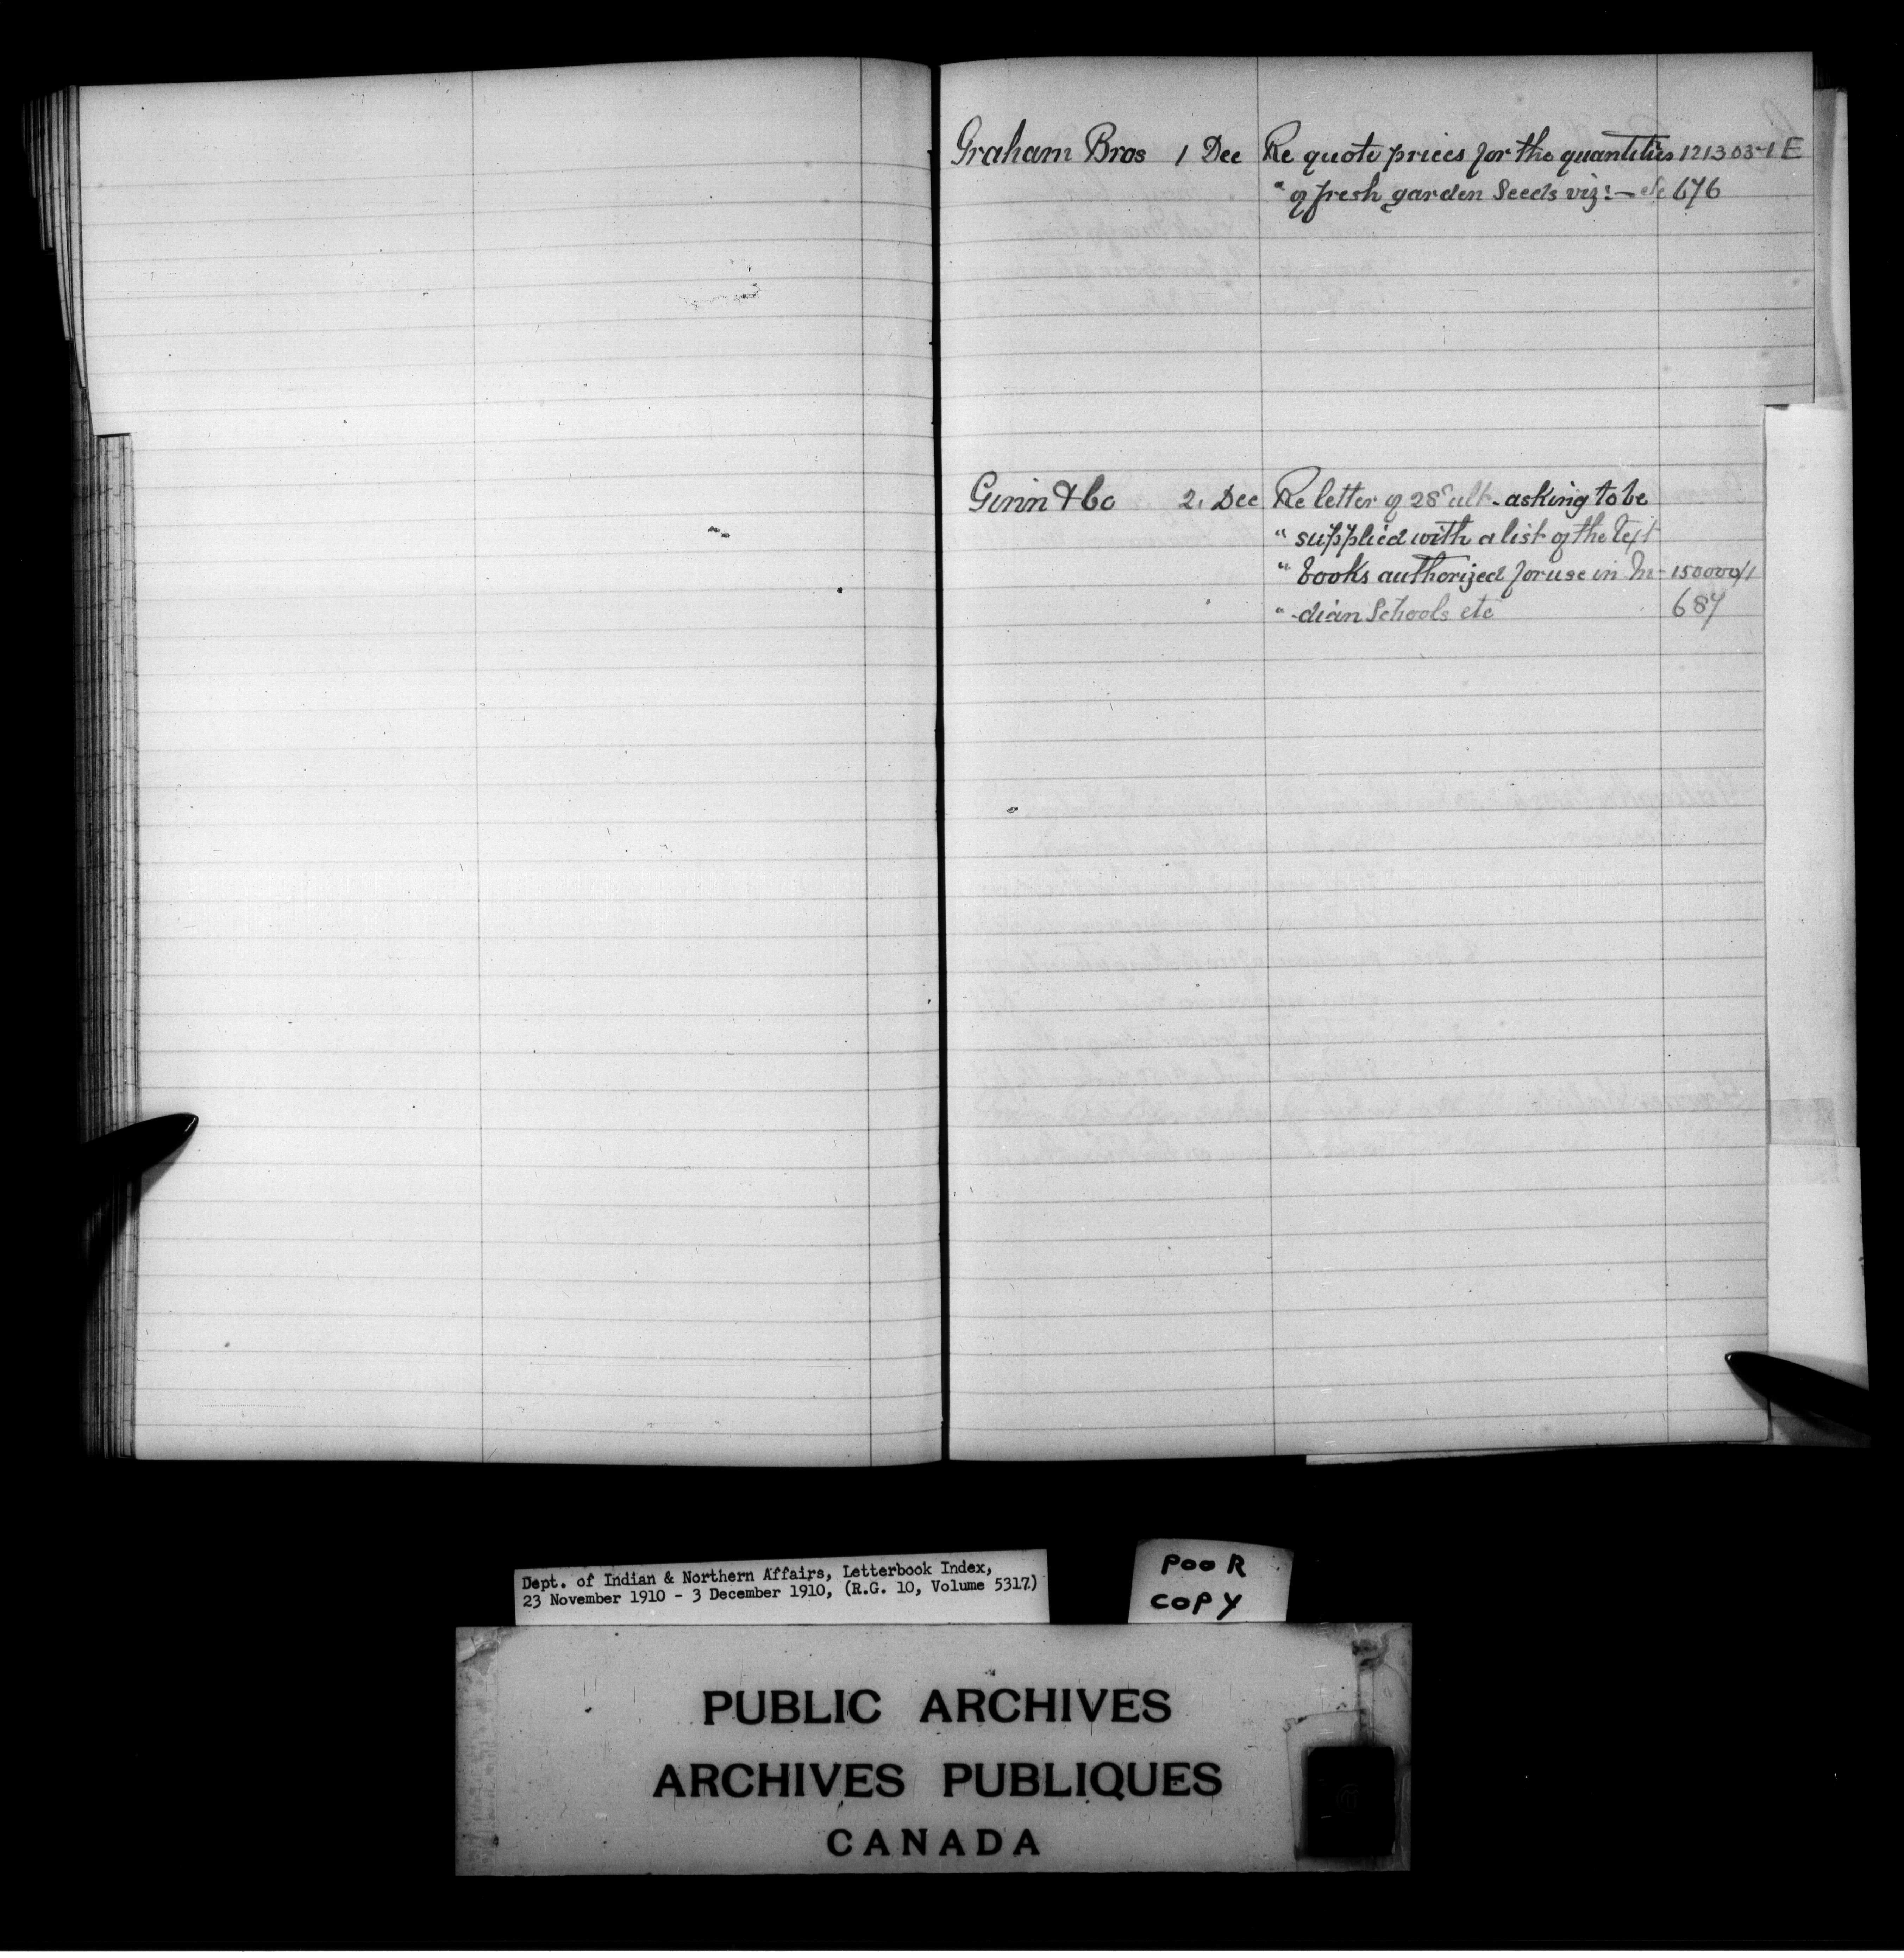 Graham Bros 1 Dee Re quote prices for the quantities 121303-1 E
" of fresh garden Seeds viz:— etc 676
Ginn & Co 2. Dec Re letter of 28" ult - asking to be
" supplied with a list of the text
" books authorized for use in In- 150000/1
" -dian Schools etc 687
Dept. of Indian & Northern Affairs, Letterbook Index,
23 November 1910 - 3 December 1910, (R.G. 10, Volume 5317)
POOR
COPY
PUBLIC ARCHIVES
ARCHIVES PUBLIQUES
CANADA